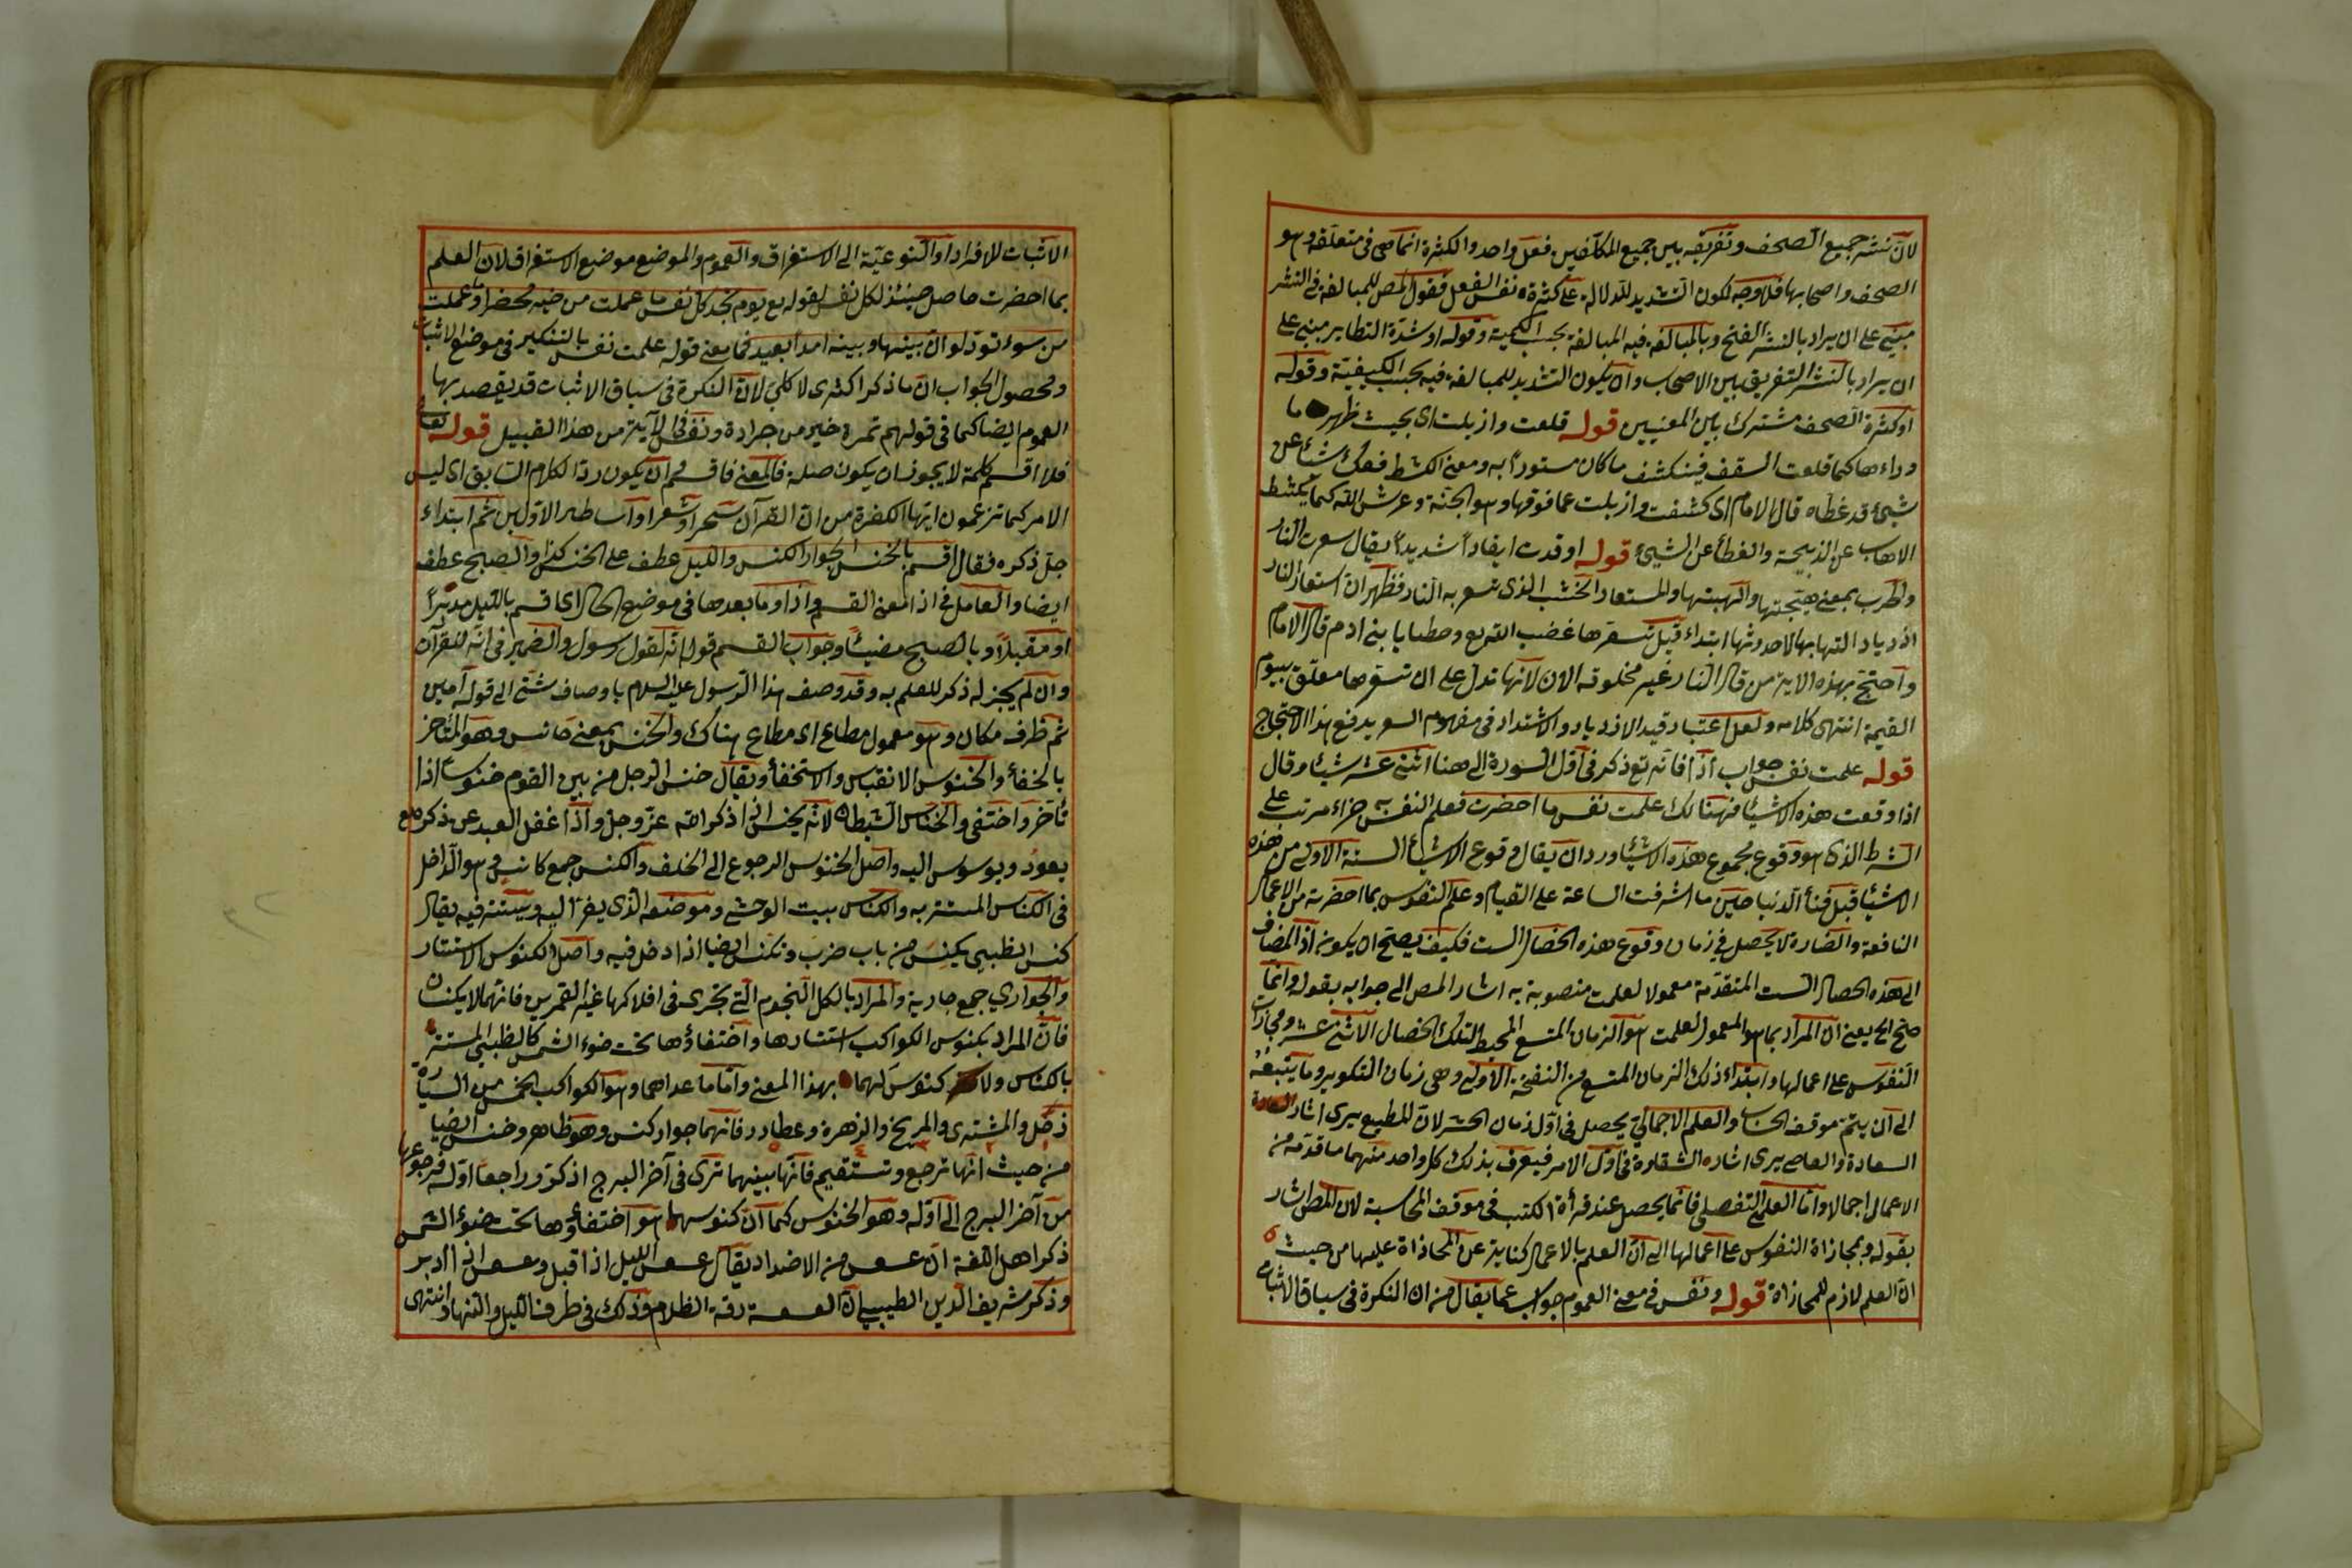 لانّ نشر جميع الصحف وتفريقه بين جميع المكلفين فعل واحد والكثرة انما هي في متعلقه وهو
الصحف واصحابها فلا وجه لكون التشديد للدلالة على كثرة نفس الفعل فقول المص للمبالغة في النشر
مبني على ان يراد بالنشر الفتح وبالمبالغة فيه المبالغة بحسب الكمية وقوله او شدة التطاير مبني على
ان يراد بالنشر التفريق بين الاصحاب وان يكون التشديد للمبالغة فيه بحسب الكيفية وقوله
او كثرة الصحف مشترك بين المعنيين قوله قلعت وازيلت اى بحيث ظهر ما
وراءها كما قلعت السقف فينكشف ما كان مستوراً به ومعنى الكشط فعك شئا عن
شئ قد غطاه قال الامام اى كشفت وازيلت عما فوقها وهو الجنة وعرش الله كما يكشط
الاهاب عن الذبيحة والغطأ عن الشئ قوله اوقدت ايقاداً شديداً يقال سعرت النار
والحرب بمعنى هيجتها والهبتها والمستعار الخشب الذى تسعر به النار فظهر ان استعار النار
ازدياد التهابها لا حدوثها ابتداء قيل تسعرها غضب الله تع وخطايا بنى ادم قال الامام
واحتج بهذه الاية من قال النار غير مخلوقة الان لانها تدل على ان تسعرها معلق بيوم
القيمة انتهى كلامه ولعل اعتبار قيد الازدياد والاشتداد في مفهوم السعر يدفع هذا الاحتجاج
قوله علمت نفس جواب اذا فانه تع ذكر في اول السورة الى هنا اثنى عشر شيئا وقال
اذا وقعت هذه الاشيأ فهنالك علمت نفس ما احضرت فعلم النفس به جزاء مرتب على
الشرط الذى هو وقوع مجموع هذه الاشيأ ورد ان يقال وقوع الاشيأ الستة الاولى من هذه
الاشيأ قبل فنأ الدنيا حين ما اشرفت الساعة على القيام وعلم النفوس بما احضرته من الاعمال
النافعة والضارة لا يحصل في زمان وقوع هذه الخصال الست فكيف يصح ان يكون اذا المضاف
الى هذه الخصال الست المتقدمة معمولا لعلمت منصوبة به اشار المص الى جوابه بقوله وانما
صح الخ يعنى ان المراد بما هو المعمول لعلمت هو الزمان المتسع المحيط لتلك الخصال الاثنى عشر ومجازات
النفوس على اعمالها وابتداء ذلك الزمان المتسع من النفخة الاولى وهي زمان التكوير وما يتبعه
الى ان يتم موقف الحساب والعلم الاجمالى يحصل في اول زمان الحشر لان المطيع يرى اثار السعادة
السعادة والعاصى يرى اثاره الشقاوة في اول الامر فيعرف بذلك كل واحد منهما ما قدمه من
الاعمال اجمالا واما العلم التفصيلى فانما يحصل عند قرأة الكتب في موقف المحاسبة لان المطل اشار
بقوله وبمجازاة النفوس على اعمالها الى ان العلم بالاعمال كناية عن المجازاة عليها من حيث
ان العلم لازم للمجازاة قوله ونفس في معنى العموم جواب عما يقال من ان النكرة في سياق الاثبات
الاثبات للافراد او النوعية الى الاستغراق والعموم والموضع موضع الاستغراق لان العلم
بما احضرت حاصل حينئذ لكل نفس لقوله تع يوم تجد كل نفس ما عملت من خير محضرا وما عملت
من سوء تود لو ان بينها وبينه امدا بعيد فما معنى قوله علمت نفس بالتنكير في موضع الاثبات
ومحصول الجواب ان ما ذكر اكثرى لا كلى لان النكرة في سياق الاثبات قد يقصد بها
العموم ايضا كما في قولهم تمرة خير من جرادة ونفس في الآية من هذا القبيل قوله تعا
فلا اقسم كلمة لا يجوز ان يكون صلة فالمعنى فاقسم وان يكون ردا لكلام السابق اى ليس
الامر كما تزعمون ايها الكفرة من ان القرآن سحر او شعر او اساطير الاولين ثم ابتداء
جل ذكره فقال اقسم بالخنس الجوار الكنس والليل عطف على الخنس كذا والصبح عطف
ايضا والعامل في اذا معنى القسم واذا وما بعدها في موضع الحال اى اقسم بالليل مدبراً
او مقبلاً وبالصبح مضيئاً وجواب القسم قوله انه لقول رسول والضمير في انه للقرآن
وان لم يجز له ذكر للعلم به وقد وصف هذا الرسول عليه السلام باوصاف شتى الى قوله امين
ثم ظرف مكان وهو معمول مطاع اى مطاع هناك والخنس بمعنى خانس وهو المتأخر
بالخفأ والخنوس الانقباس والاستخفأ ويقال خنس الرجل من بين القوم خنوسا اذا
تأخر واختفى والخناس الشيطان لانه يخنس اذا ذكر الله عز وجل واذا غفل العبد عن ذكره تع
يعود ويوسوس اليه واصل الخنوس الرجوع الى الخلف والكنس جمع كانس وهو الداخل
في الكناس المستتر به والكناس بيت الوحش وموضعه الذى يفر اليه ويستتر فيه يقال
كنس الظبى يكنس من باب ضرب وتكنس ايضا اذا دخل فيه واصل الكنوس الاستتار
والجوارى جمع جارية والمراد بالكل النجوم التى تجرى في افلاكها غير القمرين فانهما لا يكنسان
فان المراد بكنوس الكواكب استتارها واختفاؤها تحت ضوء الشمس كالظبى المستتر
بالكناس ولا كنوس لهما بهذا المعنى واما ما عداهما وهو الكواكب الخمس من السيارة
زحل والمشترى والمريخ والزهرة وعطارد فانهما جوار كنس وهو ظاهر وخنس ايضا
من حيث انها ترجع وتستقيم فانها بينهما ترى في آخر البرج اذ كر وراجعا اوله فرجوعها
من آخر البرج الى اوله وهو الخنوس كما ان كنوسها هو اختفأوها تحت ضوء الشمس
ذكر اهل اللغة ان عسعس من الاضداد يقال عسعس الليل اذا اقبل وعسعس اذا ادبر
وذكر شريف الدين الطيبى ان العسعسة رقة الظلام وذلك في طرف الليل والنهار انتهى